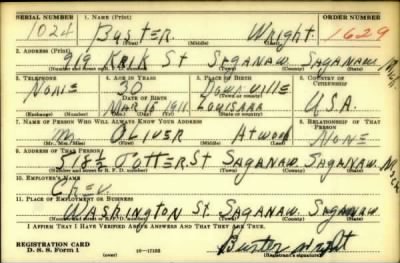 SERIAL NUMBER 1. NAME (Print) ORDER NUMBER
1024 BUSTER Wright. 1629
(First) (Middle) (Last)
2. ADDRESS (Print)
919 KRIK St SAGANAW SAGANAW Mich.
(Number and street or R. F. D. number) (Town) (County) (State)
3. TELEPHONE 4. AGE IN YEARS 5. PLACE OF BIRTH 6. COUNTRY OF CITIZENSHIP
NONE 30
DATE OF BIRTH (Town or county)
MAR 15 1911 U.S.A.
(Exchange) (Number) (Mo.) (Day) (Yr.) (State or country)
7. NAME OF PERSON WHO WILL ALWAYS KNOW YOUR ADDRESS 8. RELATIONSHIP OF THAT PERSON
Mr OLIVER Atwood NONE
(Mr., Mrs., Miss) (First) (Middle) (Last)
9. ADDRESS OF THAT PERSON
518½ POTTER St SAGANAW SAGANAW Mich
(Number and street or R. F. D. number) (Town) (County) (State)
10. EMPLOYER'S NAME
CHEV.
11. PLACE OF EMPLOYMENT OR BUSINESS
WASHINGTON St. SAGANAW. SAGANAW.
(Number and street or R. F. D. number) (Town) (County) (State)
I AFFIRM THAT I HAVE VERIFIED ABOVE ANSWERS AND THAT THEY ARE TRUE.
REGISTRATION CARD
D. S. S. Form 1 (over) 16—17105 Buster wright
(Registrant's signature)